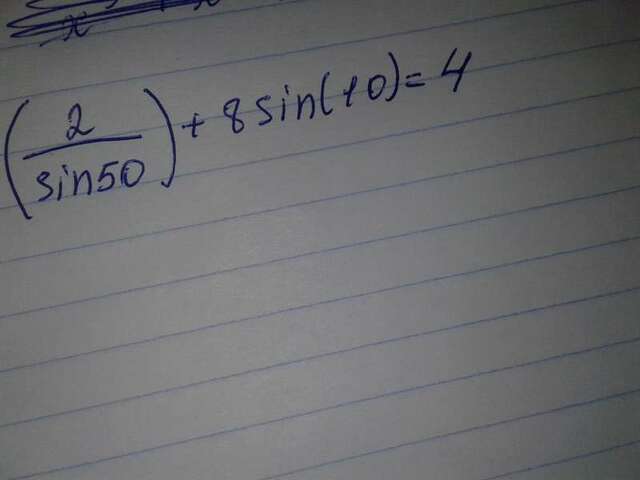 (2/sin50) + 8sin(10) = 4